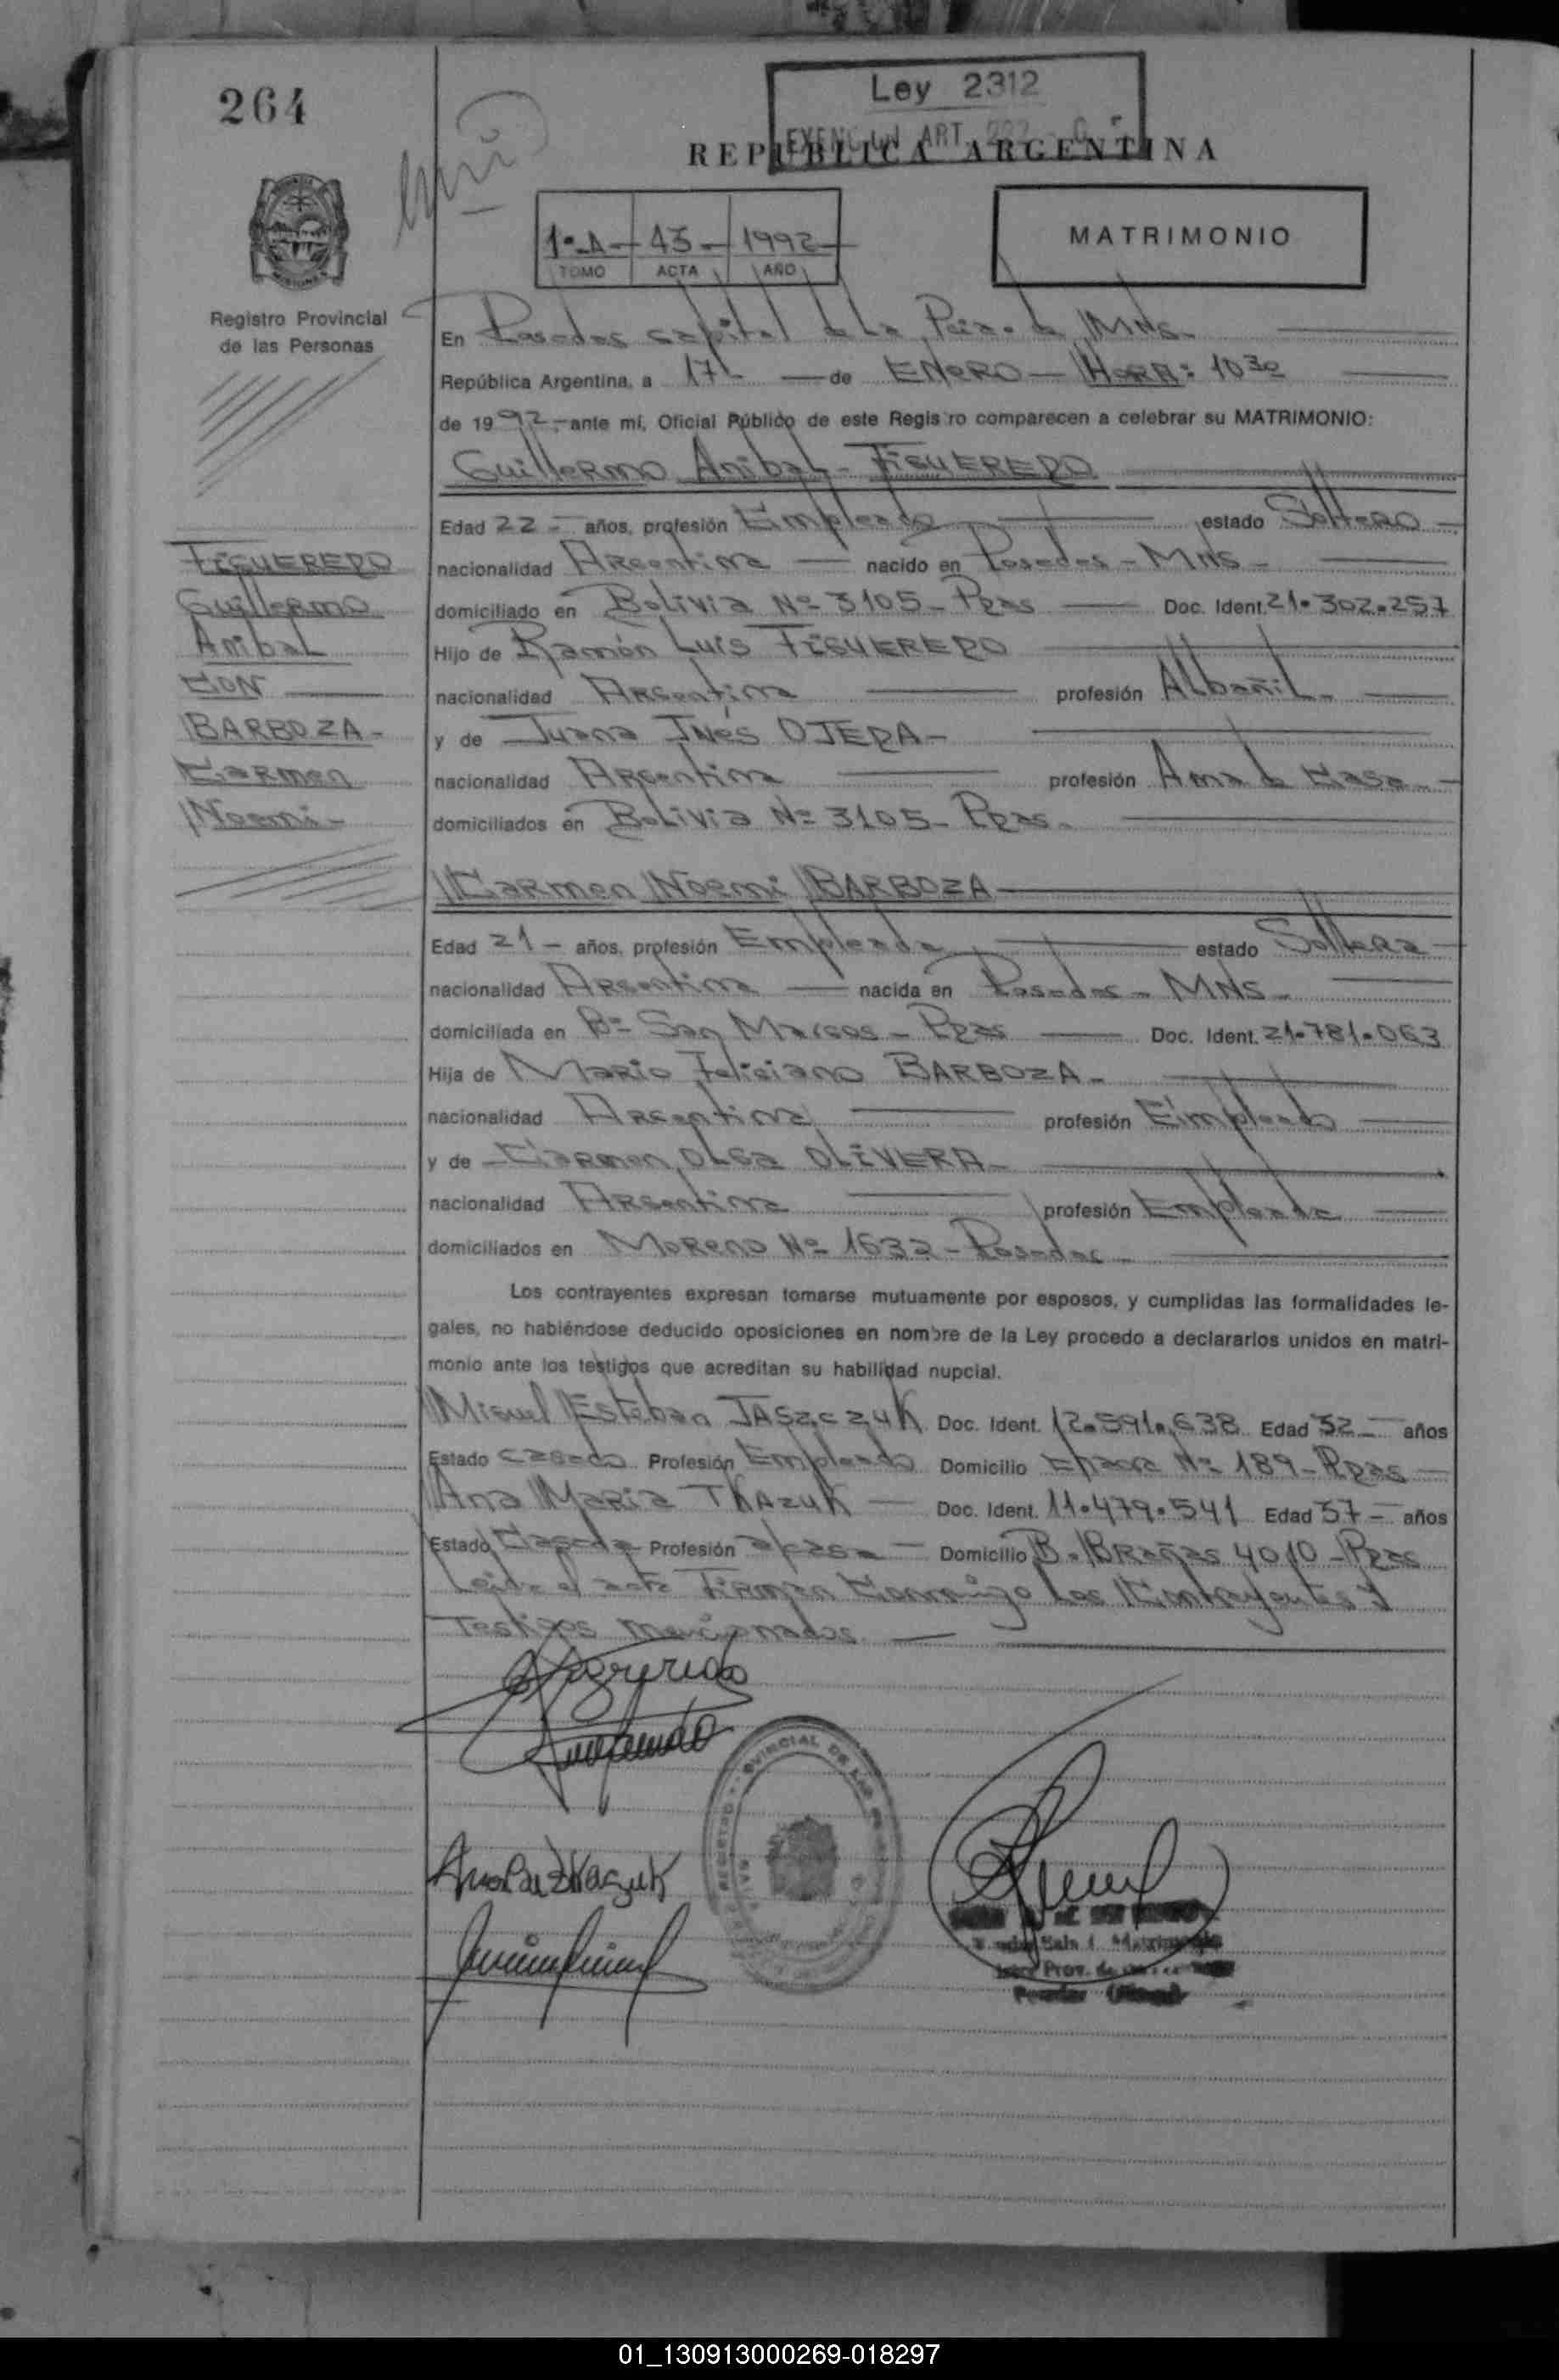 264
Ley 2312
EXENCION ART.
REPUBLICA ARGENTINA
1º-A- 43- 1992-
TOMO ACTA AÑO
MATRIMONIO
Registro Provincial
de las Personas
En Posadas capital de la Pcia. de Mnes-
República Argentina, a 17 — de ENERO — HORA: 10 30
de 1992, ante mí, Oficial Público de este Registro comparecen a celebrar su MATRIMONIO:
Guillermo Anibal - FIGUEREDO
Edad 22 - años, profesión Empleado estado Soltero -
nacionalidad Argentina — nacido en Posadas - Mns -
domiciliado en Bolivia Nº 3105 - Pdas — Doc. Ident. 21.302.257
Hijo de Ramón Luis FIGUEREDO
nacionalidad Argentina profesión Albañil -
y de Juana Inés OJEDA -
nacionalidad Argentina profesión Ama de Casa -
domiciliados en Bolivia Nº 3105 - Pdas.
FIGUEREDO
Guillermo
Anibal
CON
BARBOZA -
Carmen
Noemi -
Carmen Noemi BARBOZA
Edad 21 - años, profesión Empleada estado Soltera
nacionalidad Argentina — nacida en Posadas - Mns -
domiciliada en Bº San Marcos - Pdas — Doc. Ident. 21.781.063
Hija de Mario Feliciano BARBOZA -
nacionalidad Argentina profesión Empleado
y de Carmen Olga OLIVERA -
nacionalidad Argentina profesión Empleada
domiciliados en Moreno Nº 1632 - Posadas -
Los contrayentes expresan tomarse mutuamente por esposos, y cumplidas las formalidades le-
gales, no habiéndose deducido oposiciones en nombre de la Ley procedo a declararlos unidos en matri-
monio ante los testigos que acreditan su habilidad nupcial.
Miguel Esteban JASZCZUK Doc. Ident. 12.591.638 Edad 32 - años
Estado casado Profesión Empleado Domicilio Chacra Nº 189 - Pdas -
Ana Maria TKAZUK — Doc. Ident. 11.479.541 Edad 37 - años
Estado Casada Profesión a/casa - Domicilio B. Brañas 4010 - Pdas
Leida el acta Firman Conmigo Los Contrayentes y
Testigos mencionados. —
Posadas
01_130913000269-018297